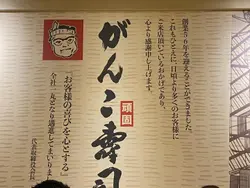 創業56年を迎えることができました。
これもひとえに、日頃より多くのお客様に
ご来店頂いているおかげであり、
心より感謝申し上げます。
頑固
がんこ寿司
「お客様の喜びを心とする」
全社一丸となり邁進してまいります
代表取締役会長